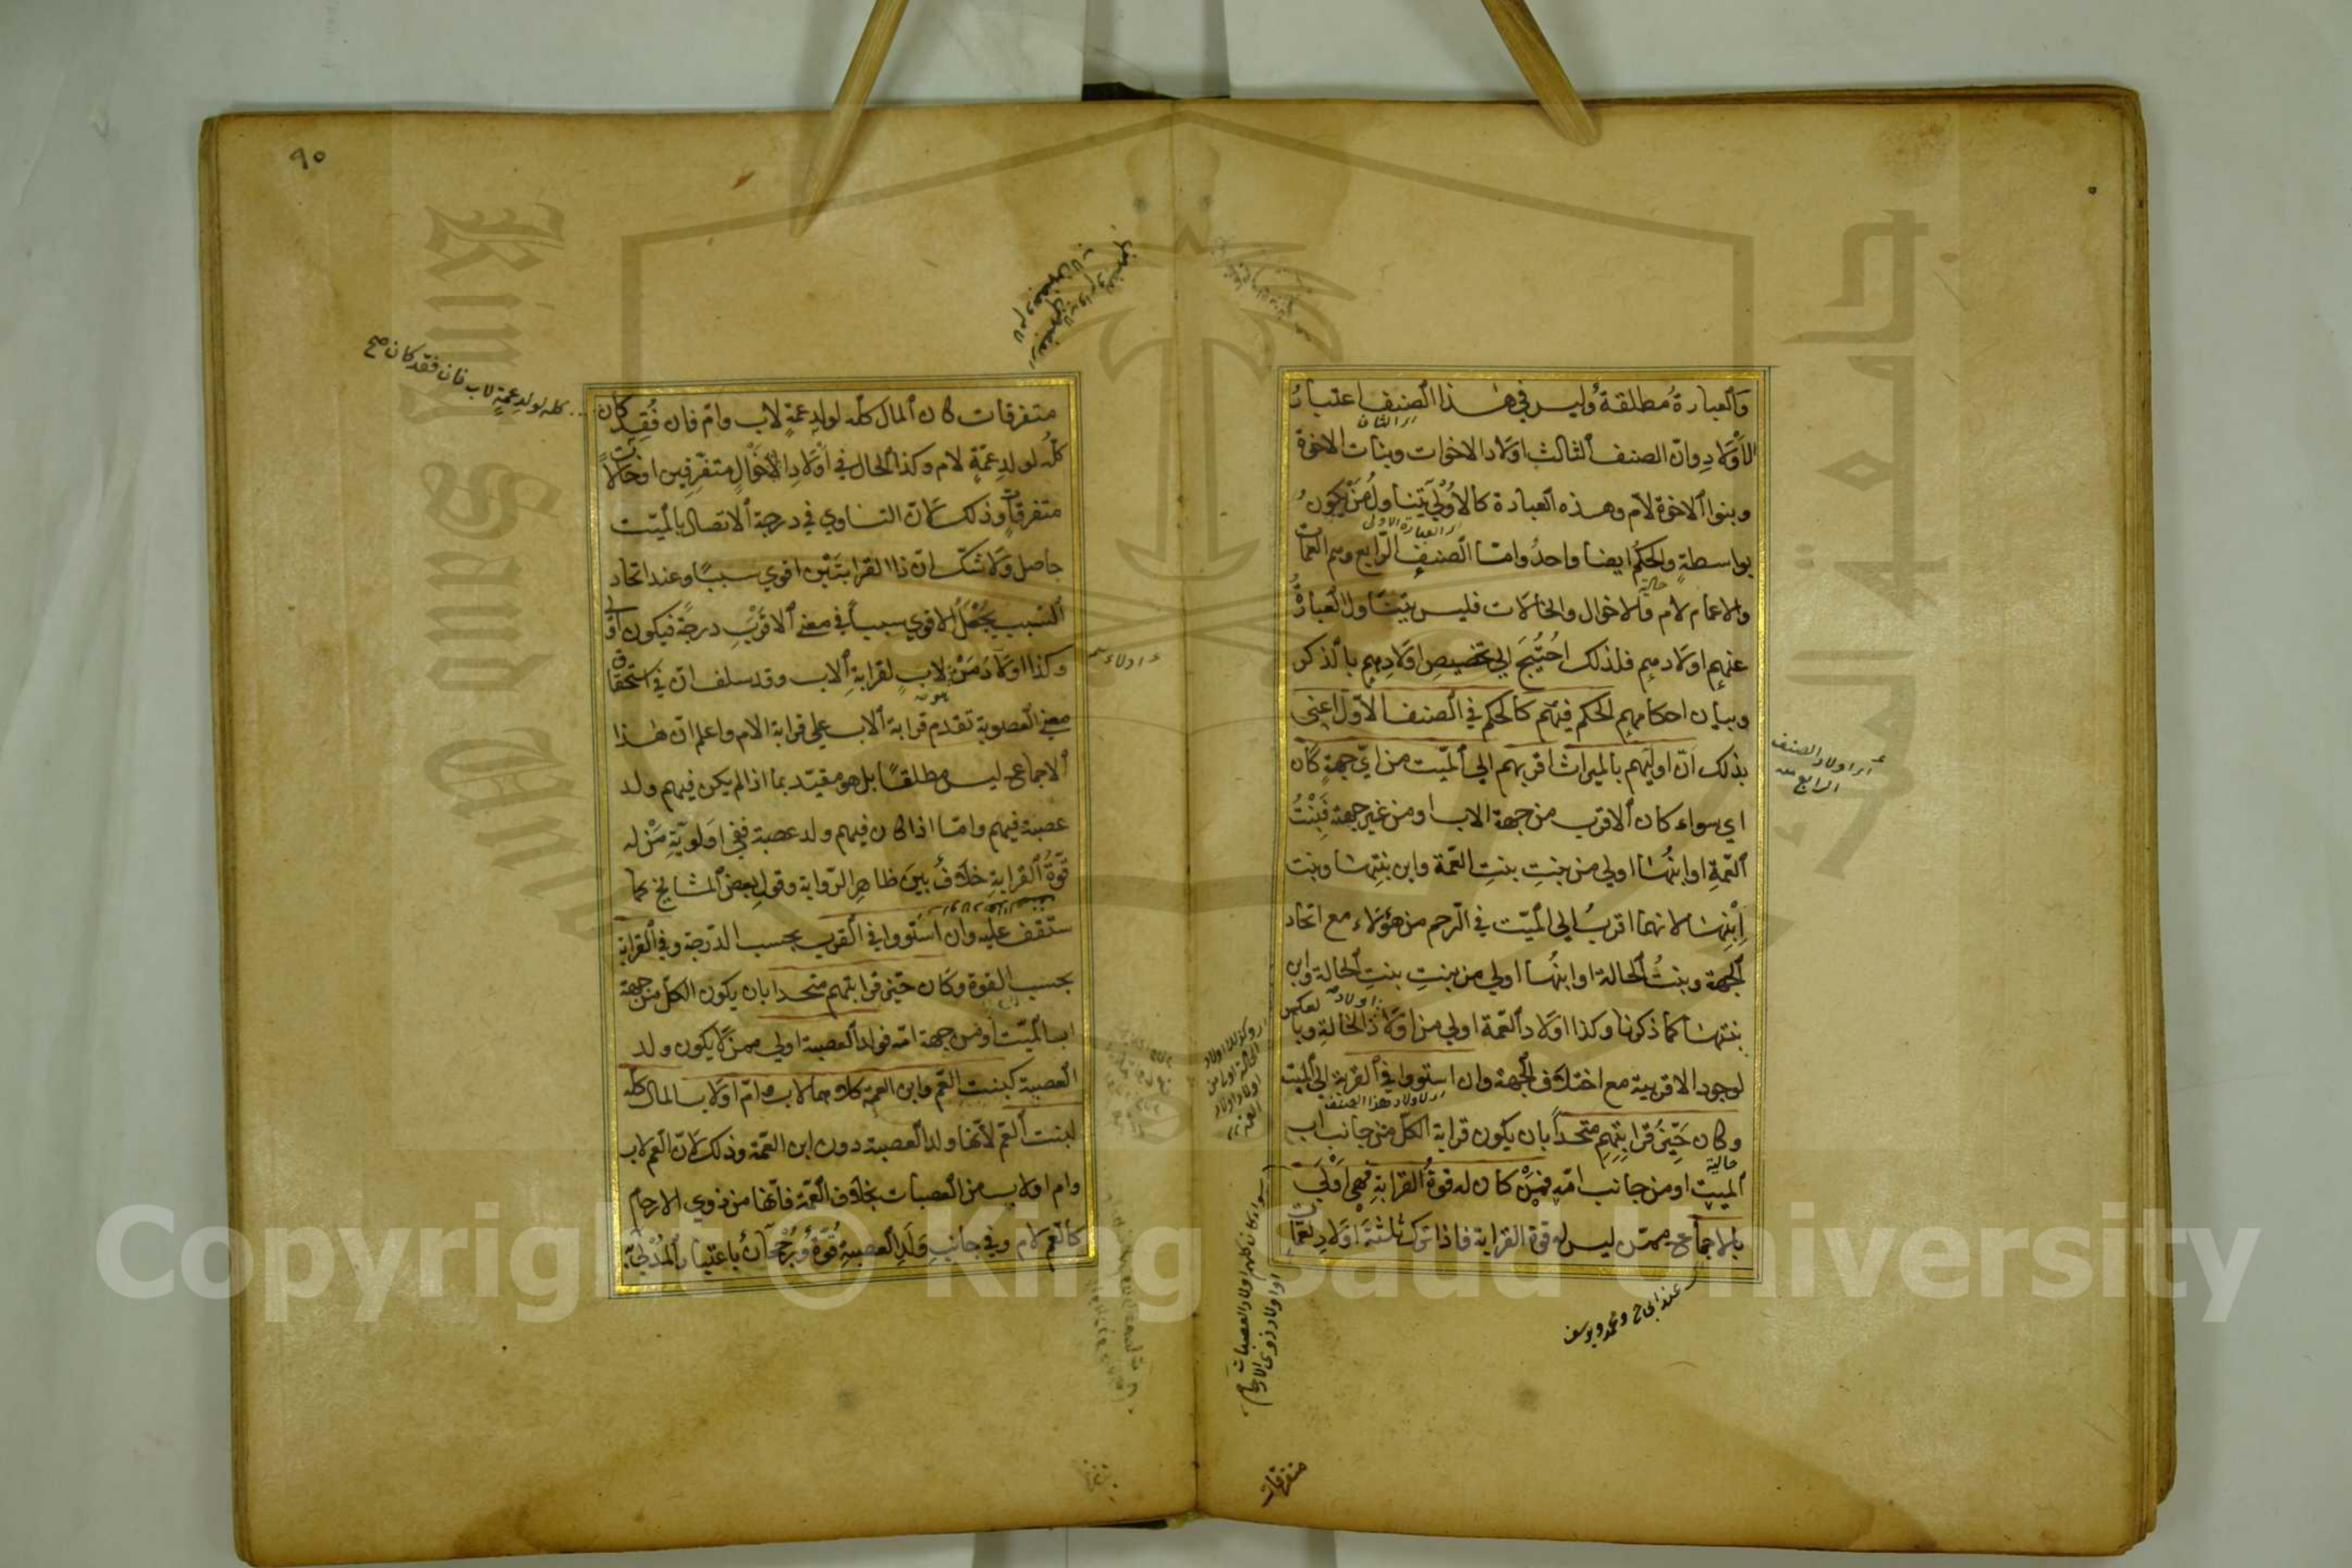 والعبارة مطلقة وليس في هذا الصنف اعتبار
الأولاد وان الصنف الثالث اولاد الاخوات وبنات الاخوة
وبنوا الاخوة لام وهذه العبارة كالاولى يتناول من يكون
بواسطة والحكم ايضا واحد واما الصنف الرابع وهم العمات
والاعمام لام والاخوال والخالات فليس يتناول العبارة
عنهم اولادهم فلذلك احتيج الي تخصيص اولادهم بالذكر
وبيان احكامهم الحكم فيهم كالحكم في الصنف الاول اعني
بذلك ان اوليهم بالميراث اقربهم الي الميت من اي جهة كان
اي سواء كان الاقرب من جهة الاب او من غير جهته فبنت
العمة او ابنها اولي من بنت بنت العمة وابن بنتها وبنت
ابنها لانهما اقرب الي الميت في الرحم من هؤلاء مع اتحاد
الجهة وبنت الخالة او ابنها اولي من بنت بنت الخالة وابن
بنتها كما ذكرنا وكذا اولاد العمة اولي من اولاد اولاد الخالة وبالعكس
لوجود الاقربية مع اختلاف الجهة وان استووا في القرب الي الميت
وكان حيز قرابتهم متحدا بان يكون قرابة الكل من جانب اب
الميت او من جانب امه فمن كان له قوة القرابة فهي اولي
بالاجماع ممن ليس له قوة القرابة فاذا ترك ثلثة اولاد عمات
اي اولاد الصنف
الرابع منه
اي الثاني
اي العبارة الاولى
حالية
اي اولاد هذا الصنف
حالية
وكذلك اولاد
الخالة اولي من
اولاد اولاد
العمة
سواء كان كلهم اولاد العصبات
او اولاد ذوي الارحام
متفرقات
٩٥
متفرقات كان المال كله لولد عمة لاب وام فان فقد كان
كله لولد عمة لام وكذا الحال في اولاد الاخوال متفرقين او خالات
متفرقات وذلك لان التساوي في درجة الاتصال بالميت
حاصل ولا شك ان ذا القرابتين اقوي سببا وعند اتحاد
السبب يجعل الاقوي سببا في معني الاقرب درجة فيكون اولي
وكذا اولاد من لاب لقرابة الاب وقد سلف ان في استحقاق
معني العصوبة تقدم قرابة الاب علي قرابة الام واعلم ان هذا
الاجماع ليس مطلقا بل هو مقيد بما اذا لم يكن فيهم ولد
عصبة فيهم واما اذا كان فيهم ولد عصبة ففي اولوية من له
قوة القرابة خلاف بين ظاهر الرواية وقول بعض المشايخ كما
ستقف عليه وان استووا في القرب بحسب الدرجة وفي القرابة
بحسب القوة وكان حيز قرابتهم متحدا بان يكون الكل من جهة
اب الميت او من جهة امه فولد العصبة اولي ممن لا يكون ولد
العصبة كبنت العم وابن العمة كلاهما لاب وام او لاب المال كله
لبنت العم لانها ولد العصبة دون ابن العمة وذلك لان العم لاب
وام او لاب من العصبات بخلاف العمة فانها من ذوي الارحام
كالعم لام وفي جانب ولد العصبة قوة ورجحان باعتبار المدلي به
كله لولد عمة لاب فان فقد كان صح
Copyright © King Saud University